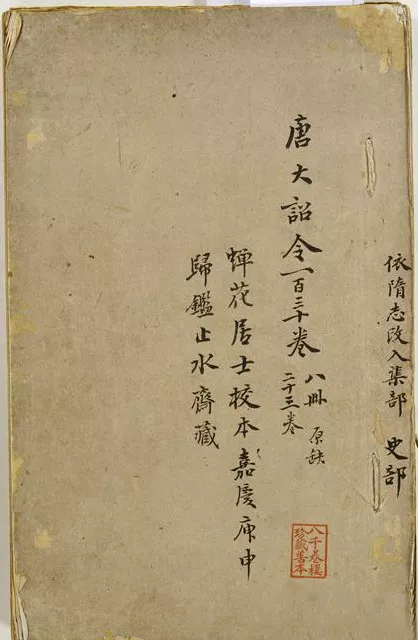 依隋志改入集部 史部
唐大詔令一百三十卷 八冊 原缺
二十三卷
蟬花居士校本嘉慶庚申
歸鑑止水齋藏
八千卷樓
珍藏善本